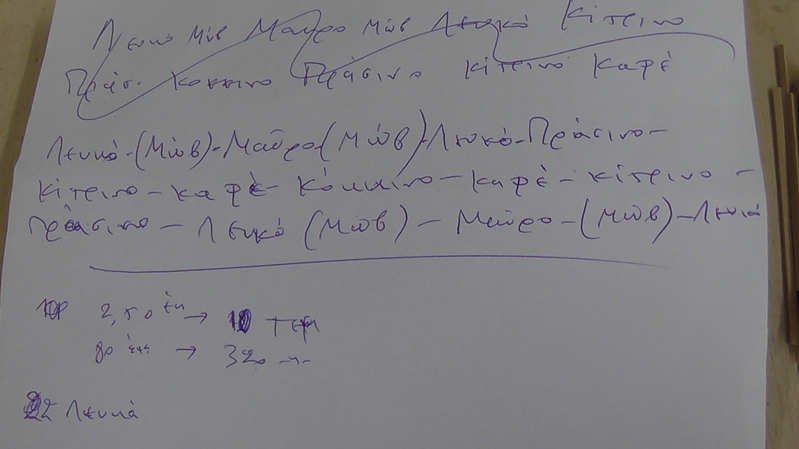 Λευκό Μώβ Μαύρο Μώβ Λευκό Κίτρινο
Πράσ. Κόκκινο Πράσινο Κίτρινο Καφέ
Λευκό-(Μώβ)-Μαύρο(Μώβ)-Λευκό-Πράσινο-
Κίτρινο-καφέ-Κόκκινο-καφέ-κίτρινο-
Πράσινο-Λευκό (Μώβ)-Μαύρο-(Μώβ)-Λευκό
2,50 → 10 τεμ
80 → 320
22 Λευκά